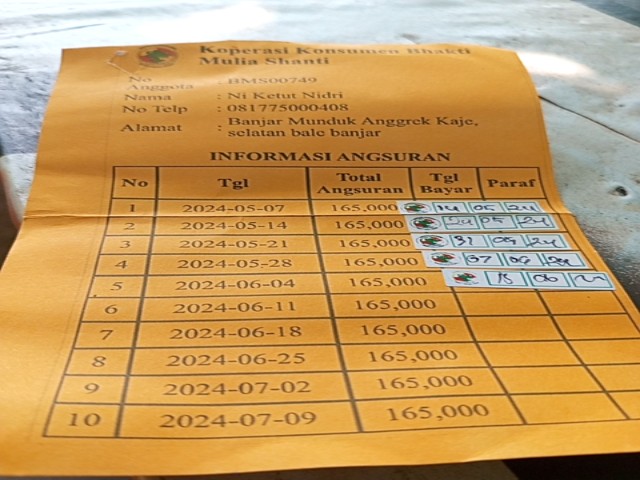 Koperasi Konsumen Bhakti
Mulia Shanti
No Anggota : BMS00749
Nama : Ni Ketut Nidri
No Telp : 081775000408
Alamat : Banjar Munduk Anggrek Kaje,
selatan bale banjar
INFORMASI ANGSURAN
No Tgl Total Angsuran Tgl Bayar Paraf
1 2024-05-07 165,000 05 24
2 2024-05-14 165,000 05 24
3 2024-05-21 165,000 31 05 24
4 2024-05-28 165,000 07 06
5 2024-06-04 165,000 18 06
6 2024-06-11 165,000
7 2024-06-18 165,000
8 2024-06-25 165,000
9 2024-07-02 165,000
10 2024-07-09 165,000